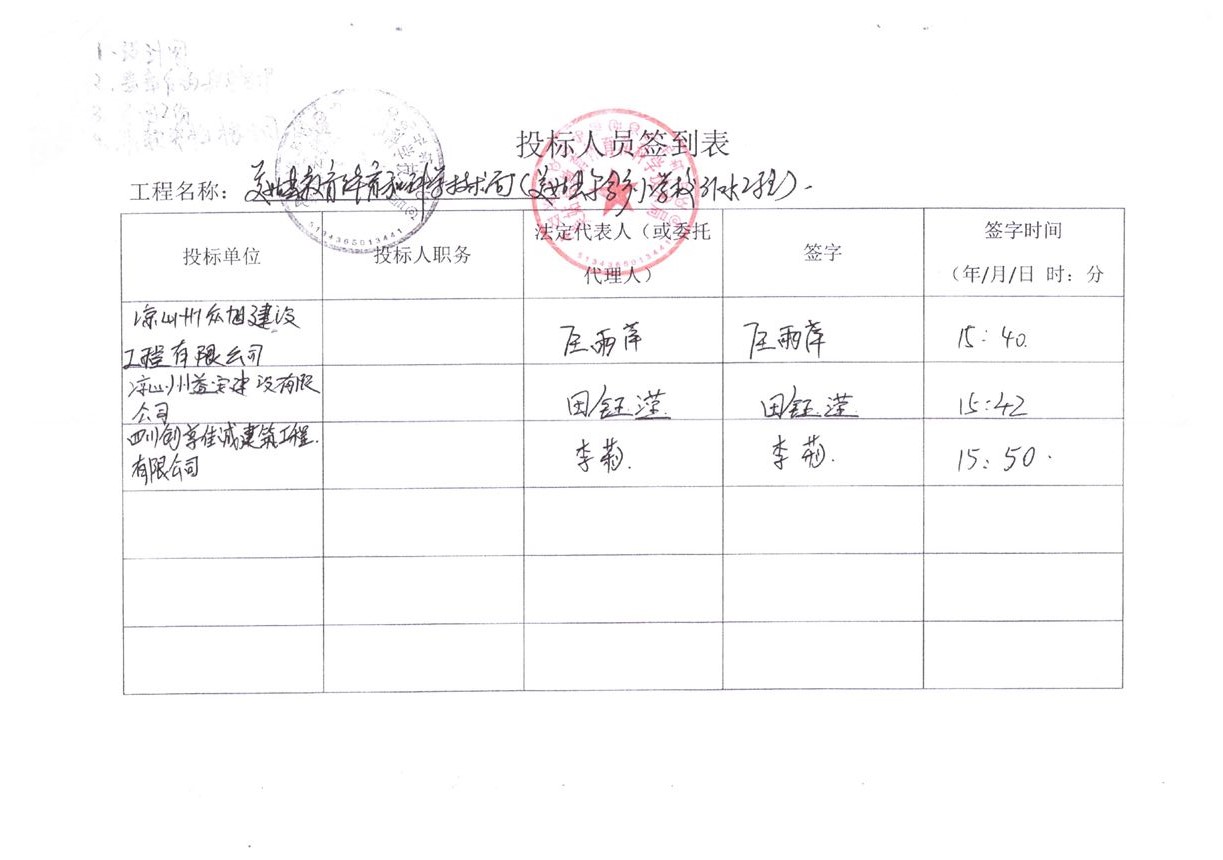 投标人员签到表
工程名称：美姑县教育体育和科学技术局(美姑县 学校引水工程).
投标单位 投标人职务 法定代表人（或委托 签字 签字时间
代理人） （年/月/日 时：分
凉山州众旭建设
工程有限公司 匡雨萍 匡雨萍 15:40.
凉山州益宏建设有限
公司 田钰滢 田钰滢 15:42
四川创享佳诚建筑工程.
有限公司 李菊. 李菊. 15:50.
5134365013441
5134365013441